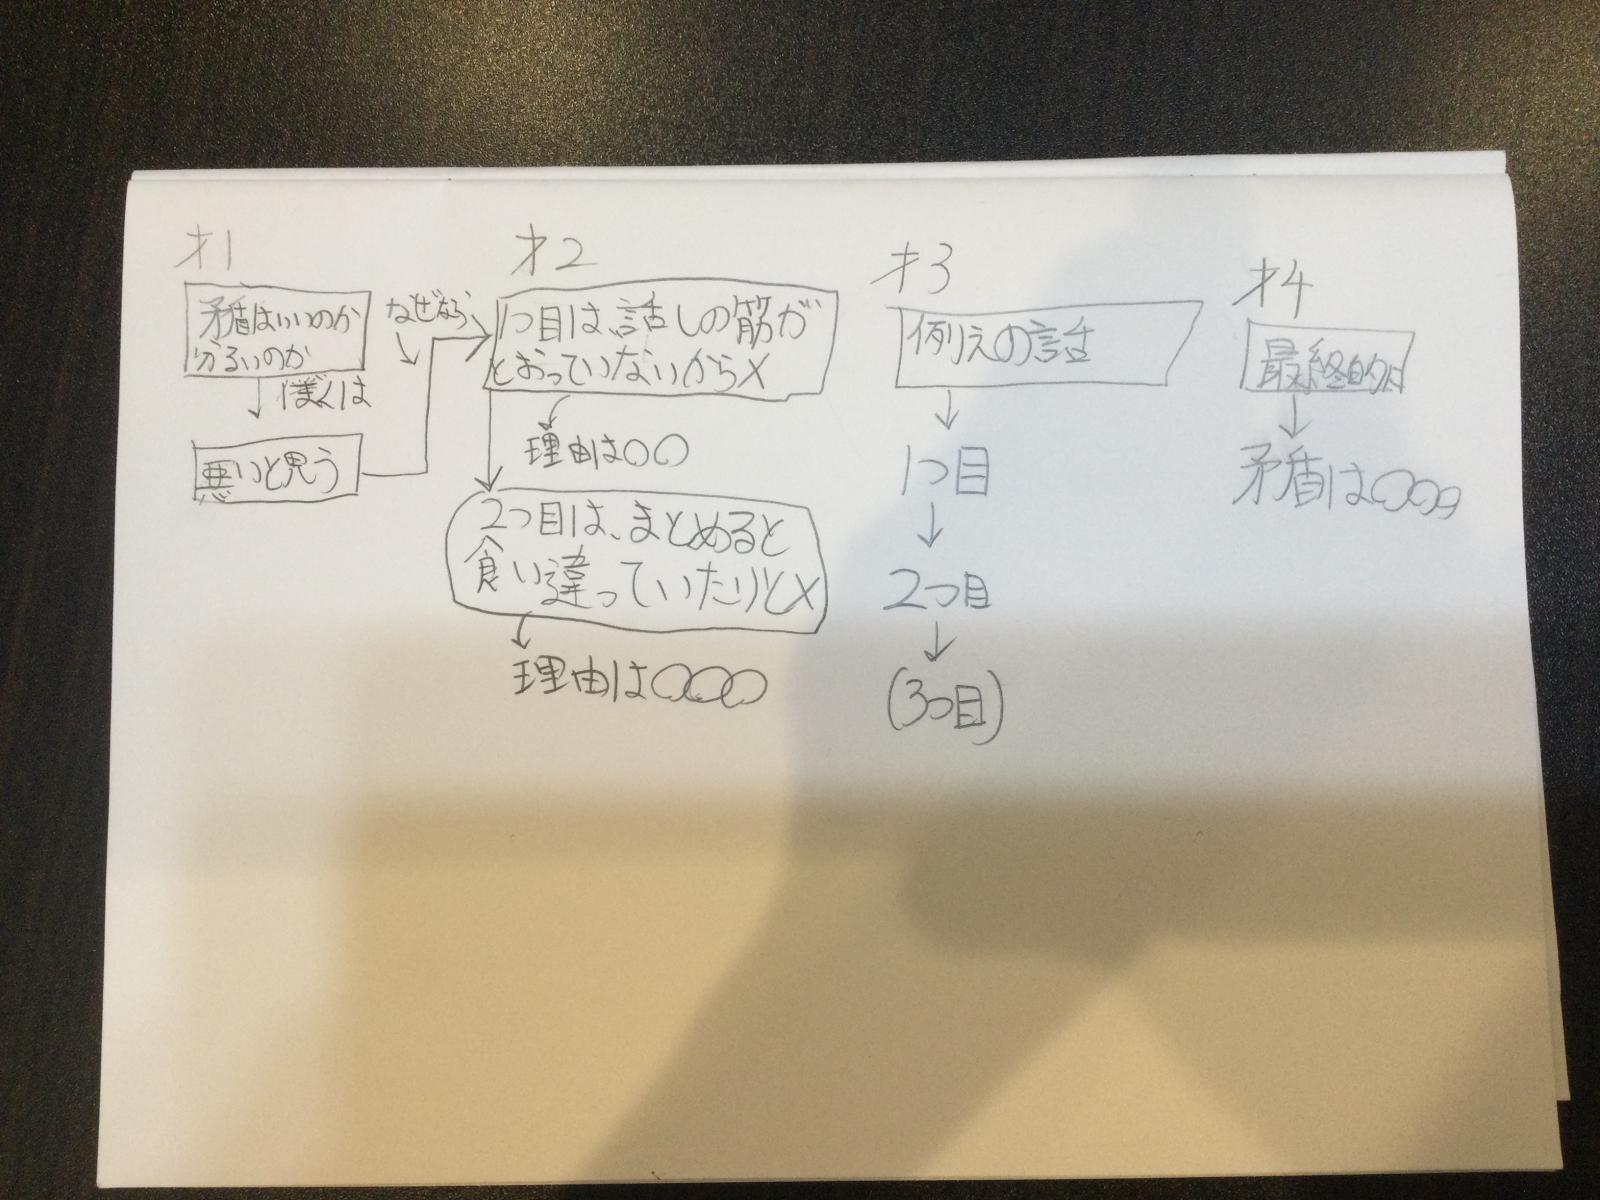 才1
矛盾はいいのか
分るいのか
ぼくは
悪いと思う
なぜなら
才2
1つ目は、話しの筋が
とおっていないから×
理由は〇〇
2つ目は、まとめると
食い違っていたりと×
理由は〇〇〇
才3
例えの話
1つ目
2つ目
(3つ目)
才4
最終的は
矛盾は〇〇〇